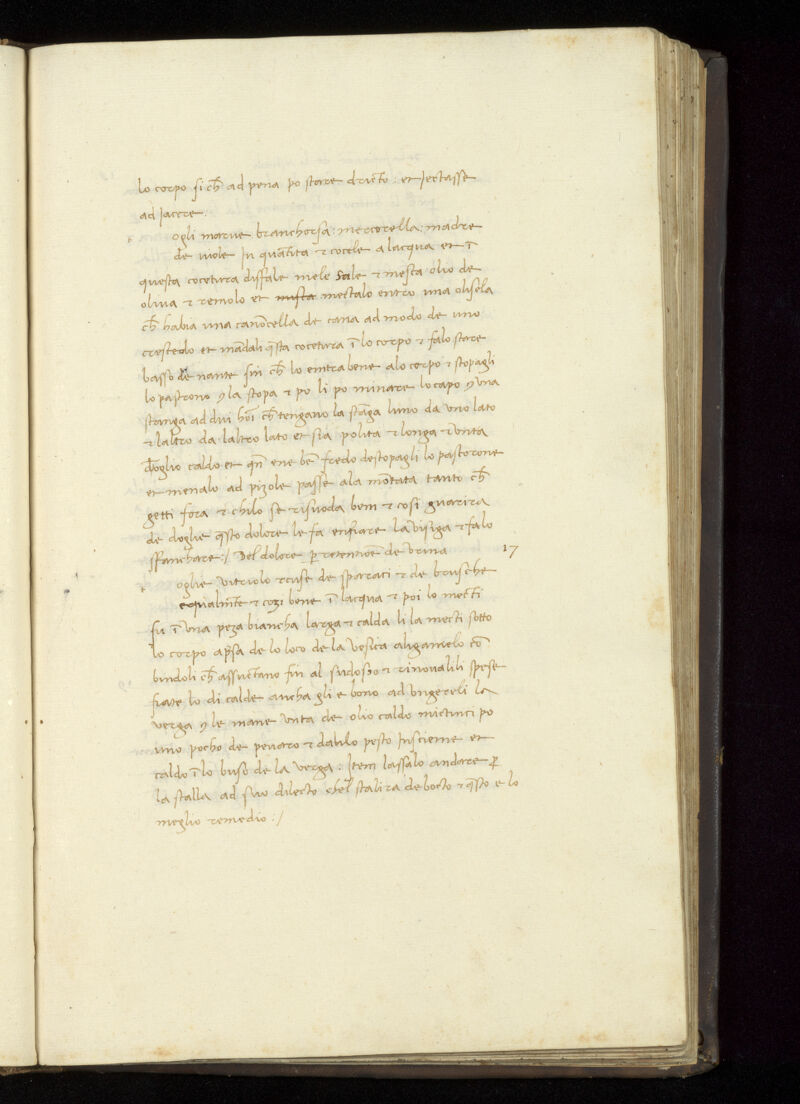 lo corpo si ch̄ ad pena po stare dricto : et jectasse
ad jacere :
ogli marue branchorsa : mercorella : madre
de uiole In quātita & cocele a lacqua et ī
questa cocetura disfale mele sale & mesta olio de
oliua & remolo et mista mectalo entro una olisela
ch̄ habia una canōcella de cana ad modo de uno
cresteolo et mādali q̄sta cocetura ī lo corpo & falo stare
basso de nante sin ch̄ lo entra bene alo corpo & stopagli
lo pastrono y la stopa & po li po minare lo capo y una
stanga ad dui hoī ch̄ tengano la stāga luno da uno lato
& laltro da laltro lato et sia polita & longa & unta
doglio caldo et qn̄ ene bē fredo destopagli lo pastorone
et menalo ad pizole passe ala mōtata tanto ch̄
getti fora & chilo se risuoda bem & cosi guarira
de doglie q̄sto dolore le fa enfiare la uisiga & falo
sffanchare :/ Del dolore p̄ retencioē de urina 17
oglie uitriolo & cuse de sparaci & de brusche
equalmēte & cozi bene ī lacqua & poi lo mecti
su ī una peza biancha larga & calda li la mecti sotto
lo corpo ap̄sa de lo loco de la uesica aligamelo cō
bindoli ch̄ assuctano fin al sudosso & rinoualili spese
fiate lo di calde ancha gli e bono ad ungereli la
verga y le mane unta de olio caldo mictinci po
uno pocho de peuaro & dahilo pesto Inscieme et
caldo ī lo buso de la verga : Item lassalo andare p̄
la stalla ad suo dilecto chel stalira de bocto & q̄sto e lo
meglio remedio :/